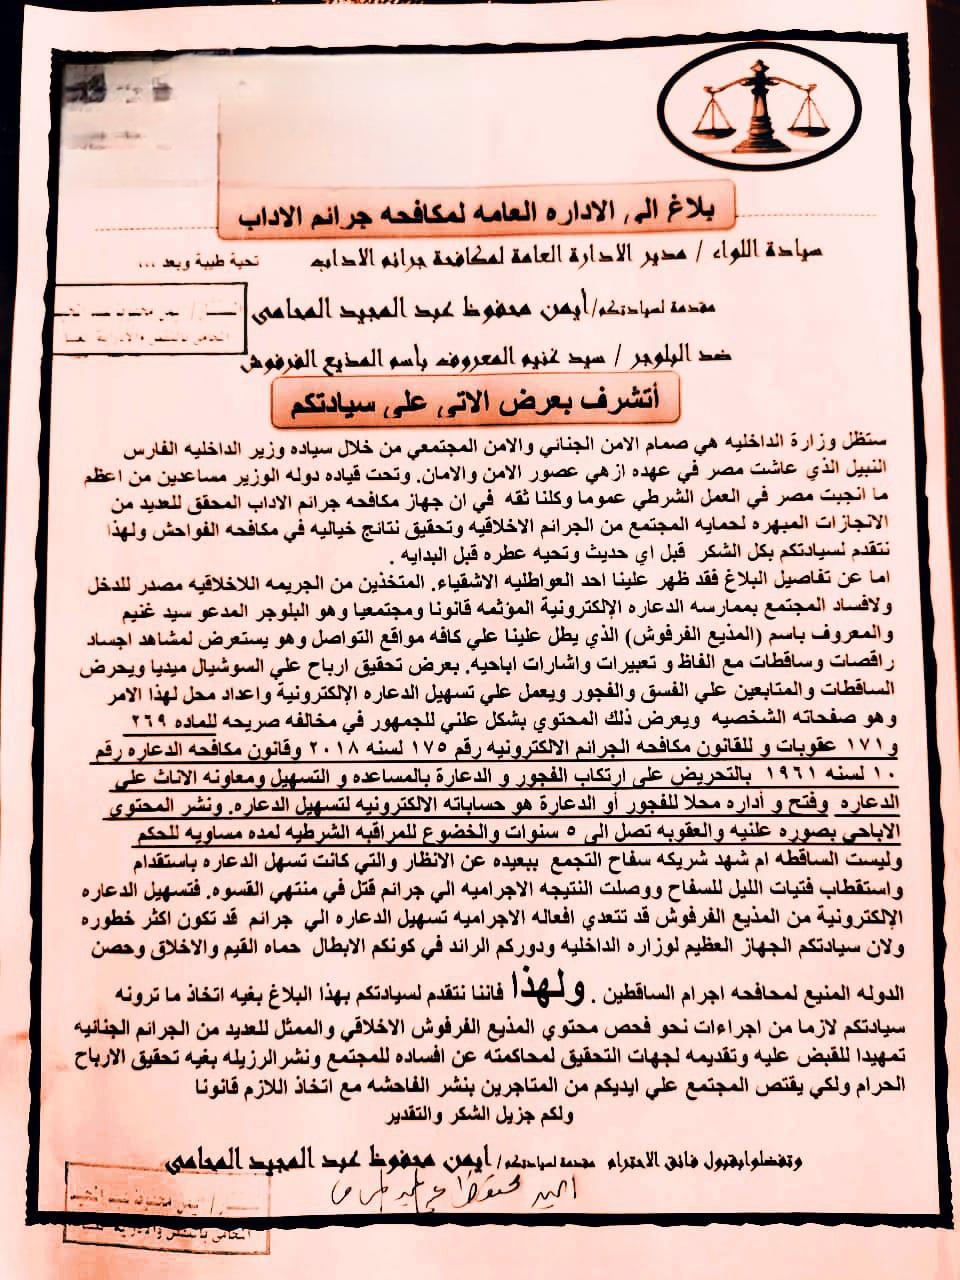 بلاغ الى الاداره العامه لمكافحه جرائم الاداب
سيادة اللواء / مدير الادارة العامة لمكافحة جرائم الاداب تحية طيبة وبعد ...
مقدمة لسيادتكم/أيمن محفوظ عبد المجيد المحامى
ضد البلوجر / سيد غنيم المعروف بأسم المذيع الفرفوش
أتشرف بعرض الاتى على سيادتكم
ستظل وزارة الداخليه هي صمام الامن الجنائي والامن المجتمعي من خلال سياده وزير الداخليه الفارس
النبيل الذي عاشت مصر في عهده ازهي عصور الامن والامان. وتحت قياده دوله الوزير مساعدين من اعظم
ما انجبت مصر في العمل الشرطي عموما وكلنا ثقه في ان جهاز مكافحه جرائم الاداب المحقق للعديد من
الانجازات المبهره لحمايه المجتمع من الجرائم الاخلاقيه وتحقيق نتائج خياليه في مكافحه الفواحش ولهذا
نتقدم لسيادتكم بكل الشكر قبل اي حديث وتحيه عطره قبل البدايه .
اما عن تفاصيل البلاغ فقد ظهر علينا احد العواطليه الاشقياء. المتخذين من الجريمه اللاخلاقيه مصدر للدخل
ولافساد المجتمع بممارسه الدعاره الإلكترونية المؤثمه قانونا ومجتمعيا وهو البلوجر المدعو سيد غنيم
والمعروف باسم (المذيع الفرفوش) الذي يطل علينا علي كافه مواقع التواصل وهو يستعرض لمشاهد اجساد
راقصات وساقطات مع الفاظ و تعبيرات واشارات اباحيه. بعرض تحقيق ارباح علي السوشيال ميديا ويحرض
الساقطات والمتابعين علي الفسق والفجور ويعمل علي تسهيل الدعاره الإلكترونية واعداد محل لهذا الامر
وهو صفحاته الشخصيه ويعرض ذلك المحتوي بشكل علني للجمهور في مخالفه صريحه للماده ٢٦٩
و١٧١ عقوبات و للقانون مكافحه الجرائم الالكترونيه رقم ١٧٥ لسنه ٢٠١٨ وقانون مكافحه الدعاره رقم
١٠ لسنه ١٩٦١ بالتحريض على ارتكاب الفجور و الدعارة بالمساعده و التسهيل ومعاونه الاناث علي
الدعاره وفتح و أداره محلا للفجور أو الدعارة هو حساباته الالكترونيه لتسهيل الدعاره. ونشر المحتوي
الاباحي بصوره علنيه والعقوبه تصل الى ٥ سنوات والخضوع للمراقبه الشرطيه لمده مساويه للحكم
وليست الساقطه ام شهد شريكه سفاح التجمع ببعيده عن الانظار والتي كانت تسهل الدعاره باستقدام
واستقطاب فتيات الليل للسفاح ووصلت النتيجه الاجراميه الي جرائم قتل في منتهي القسوه. فتسهيل الدعاره
الإلكترونية من المذيع الفرفوش قد تتعدي افعاله الاجراميه تسهيل الدعاره الي جرائم قد تكون اكثر خطوره
ولان سيادتكم الجهاز العظيم لوزاره الداخليه ودوركم الرائد في كونكم الابطال حماه القيم والاخلاق وحصن
الدوله المنيع لمحافحه اجرام الساقطين . ولهذا فاننا نتقدم لسيادتكم بهذا البلاغ بغيه اتخاذ ما ترونه
سيادتكم لازما من اجراءات نحو فحص محتوي المذيع الفرفوش الاخلاقي والممثل للعديد من الجرائم الجنائيه
تمهيدا للقبض عليه وتقديمه لجهات التحقيق لمحاكمته عن افساده للمجتمع ونشر الرزيله بغيه تحقيق الارباح
الحرام ولكي يقتص المجتمع علي ايديكم من المتاجرين بنشر الفاحشه مع اتخاذ اللازم قانونا
ولكم جزيل الشكر والتقدير
وتفضلوا بقبول فائق الاحترام مقدمة لسيادتكم/ أيمن محفوظ عبد المجيد المحامى